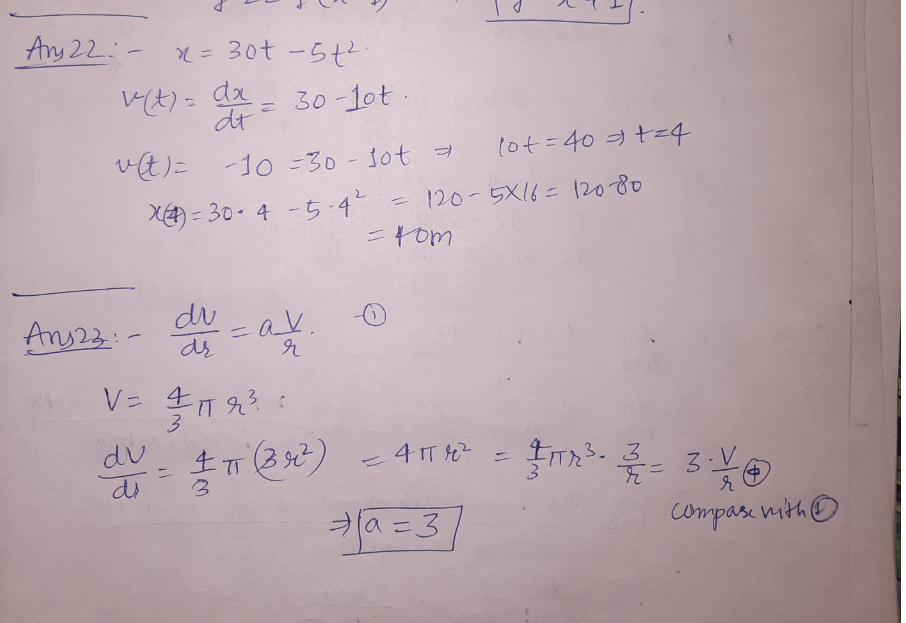 Ans 22 :- x = 30t - 5t².
v(t) = dx/dt = 30 - 10t.
v(t) = -10 = 30 - 10t ⇒ 10t = 40 ⇒ t = 4
x(4) = 30·4 - 5·4² = 120 - 5×16 = 120-80
= 40m
Ans 23 :- dv/dr = a V/r. -①
V = 4/3 π r³.
dv/dr = 4/3 π (3r²) = 4πr² = 4/3 πr³. 3/r = 3·V/r
compare with ①
⇒ a = 3